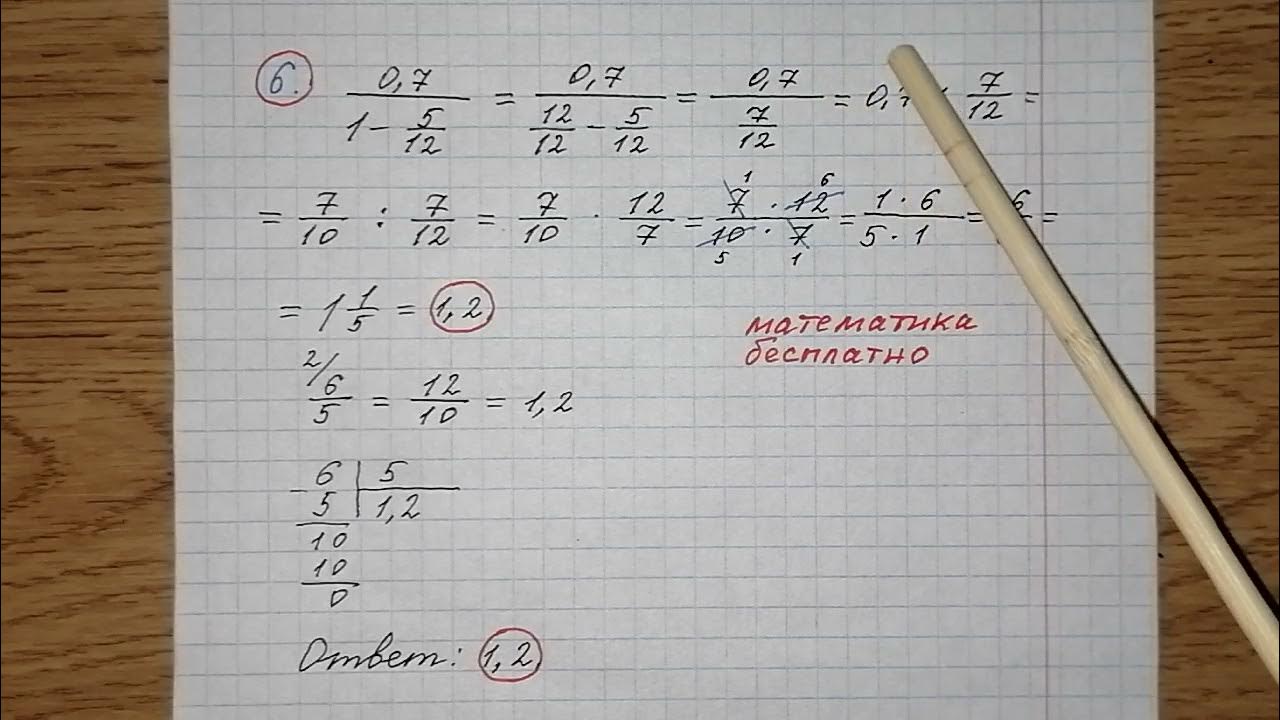 6. 0,7 / (1 - 5/12) = 0,7 / (12/12 - 5/12) = 0,7 / (7/12) = 0, 7/12 =
= 7/10 : 7/12 = 7/10 · 12/7 = 7 · 12 / 10 · 7 = 1 · 6 / 5 · 1 = 6 =
1 6
5 1
= 1 1/5 = 1,2
математика
бесплатно
2/ 6/5 = 12/10 = 1,2
6 | 5
- 5 | 1,2
10
10
0
Ответ: 1,2